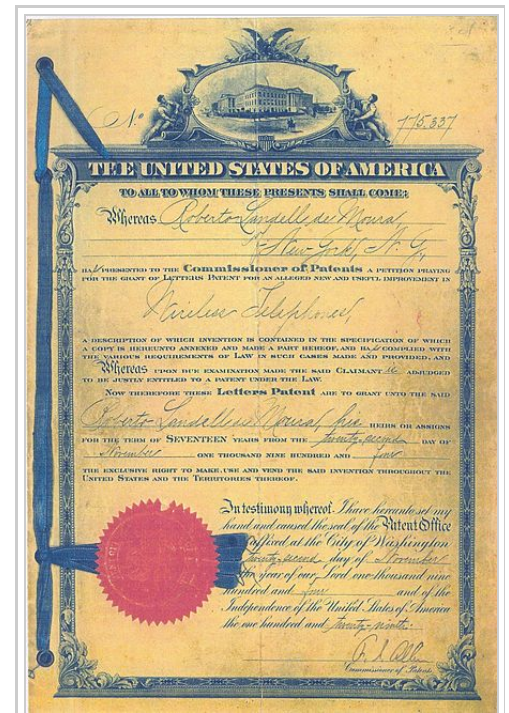 No. 775.337
THE UNITED STATES OF AMERICA
TO ALL TO WHOM THESE PRESENTS SHALL COME:
Whereas Roberto Landell de Moura,
of New York, N. Y.,
HAS PRESENTED TO THE Commissioner of Patents A PETITION PRAYING
FOR THE GRANT OF LETTERS PATENT FOR AN ALLEGED NEW AND USEFUL IMPROVEMENT IN
Wireless Telephones,
A DESCRIPTION OF WHICH INVENTION IS CONTAINED IN THE SPECIFICATION OF WHICH
A COPY IS HEREUNTO ANNEXED AND MADE A PART HEREOF, AND HAS COMPLIED WITH
THE VARIOUS REQUIREMENTS OF LAW IN SUCH CASES MADE AND PROVIDED, AND
Whereas UPON DUE EXAMINATION MADE THE SAID CLAIMANT is ADJUDGED
TO BE JUSTLY ENTITLED TO A PATENT UNDER THE LAW.
NOW THEREFORE THESE Letters Patent ARE TO GRANT UNTO THE SAID
Roberto Landell de Moura, his HEIRS OR ASSIGNS
FOR THE TERM OF SEVENTEEN YEARS FROM THE twenty-second DAY OF
November ONE THOUSAND NINE HUNDRED AND four
THE EXCLUSIVE RIGHT TO MAKE, USE AND VEND THE SAID INVENTION THROUGHOUT THE
UNITED STATES AND THE TERRITORIES THEREOF.
In testimony whereof, I have hereunto set my
hand and caused the seal of the Patent Office
affixed at the City of Washington
twenty-second day of November
year of our Lord one thousand nine
hundred and four and of the
Independence of the United States of America
the one hundred and twenty-ninth.
Commissioner of Patents